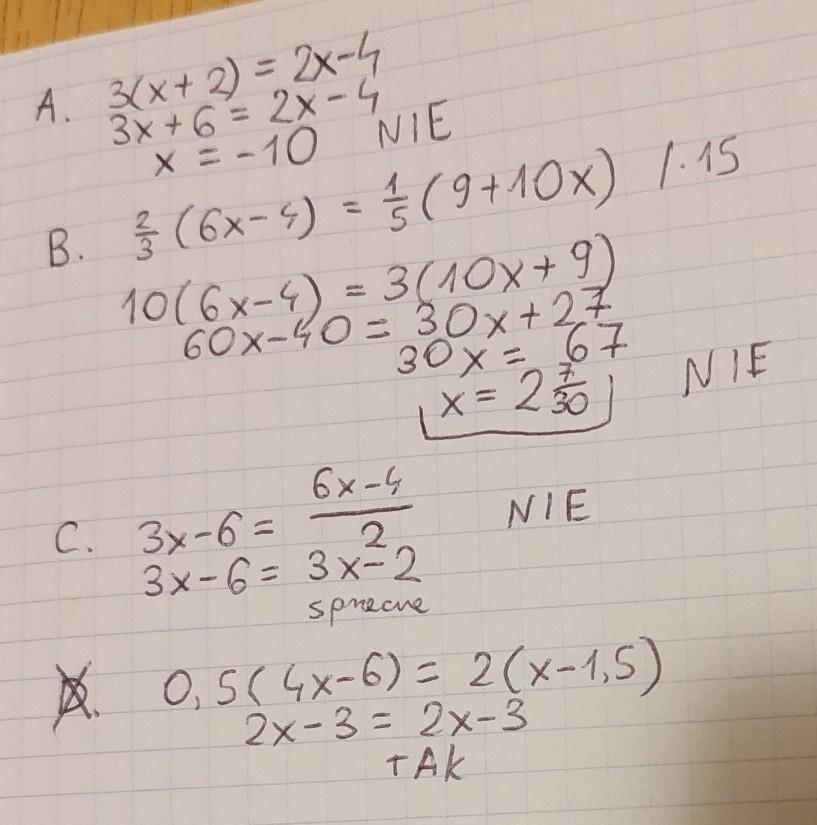 A. 3(x+2) = 2x-4
3x+6 = 2x-4
x = -10 NIE
B. 2/3 (6x-4) = 1/5 (9+10x) /·15
10(6x-4) = 3(10x+9)
60x-40 = 30x+27
30x = 67
x = 2 7/30 NIE
C. 3x-6 = (6x-4)/2 NIE
3x-6 = 3x-2
sprzecne
D. 0,5(4x-6) = 2(x-1,5)
2x-3 = 2x-3
TAK